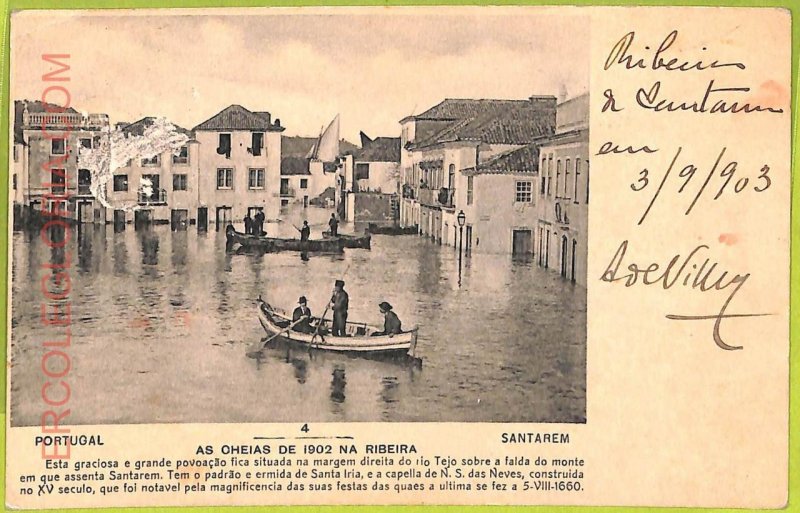 Ribeira
de Santarem
em
3/9/903
A de Villey
ERCOLEGLORIA.COM
4
PORTUGAL
AS OHEIAS DE 1902 NA RIBEIRA
SANTAREM
Esta graciosa e grande povoação fica situada na margem direita do rio Tejo sobre a falda do monte
em que assenta Santarem. Tem o padrão e ermida de Santa Iria, e a capella de N. S. das Neves, construida
no XV seculo, que foi notavel pela magnificencia das suas festas das quaes a ultima se fez a 5-VIII-1660.